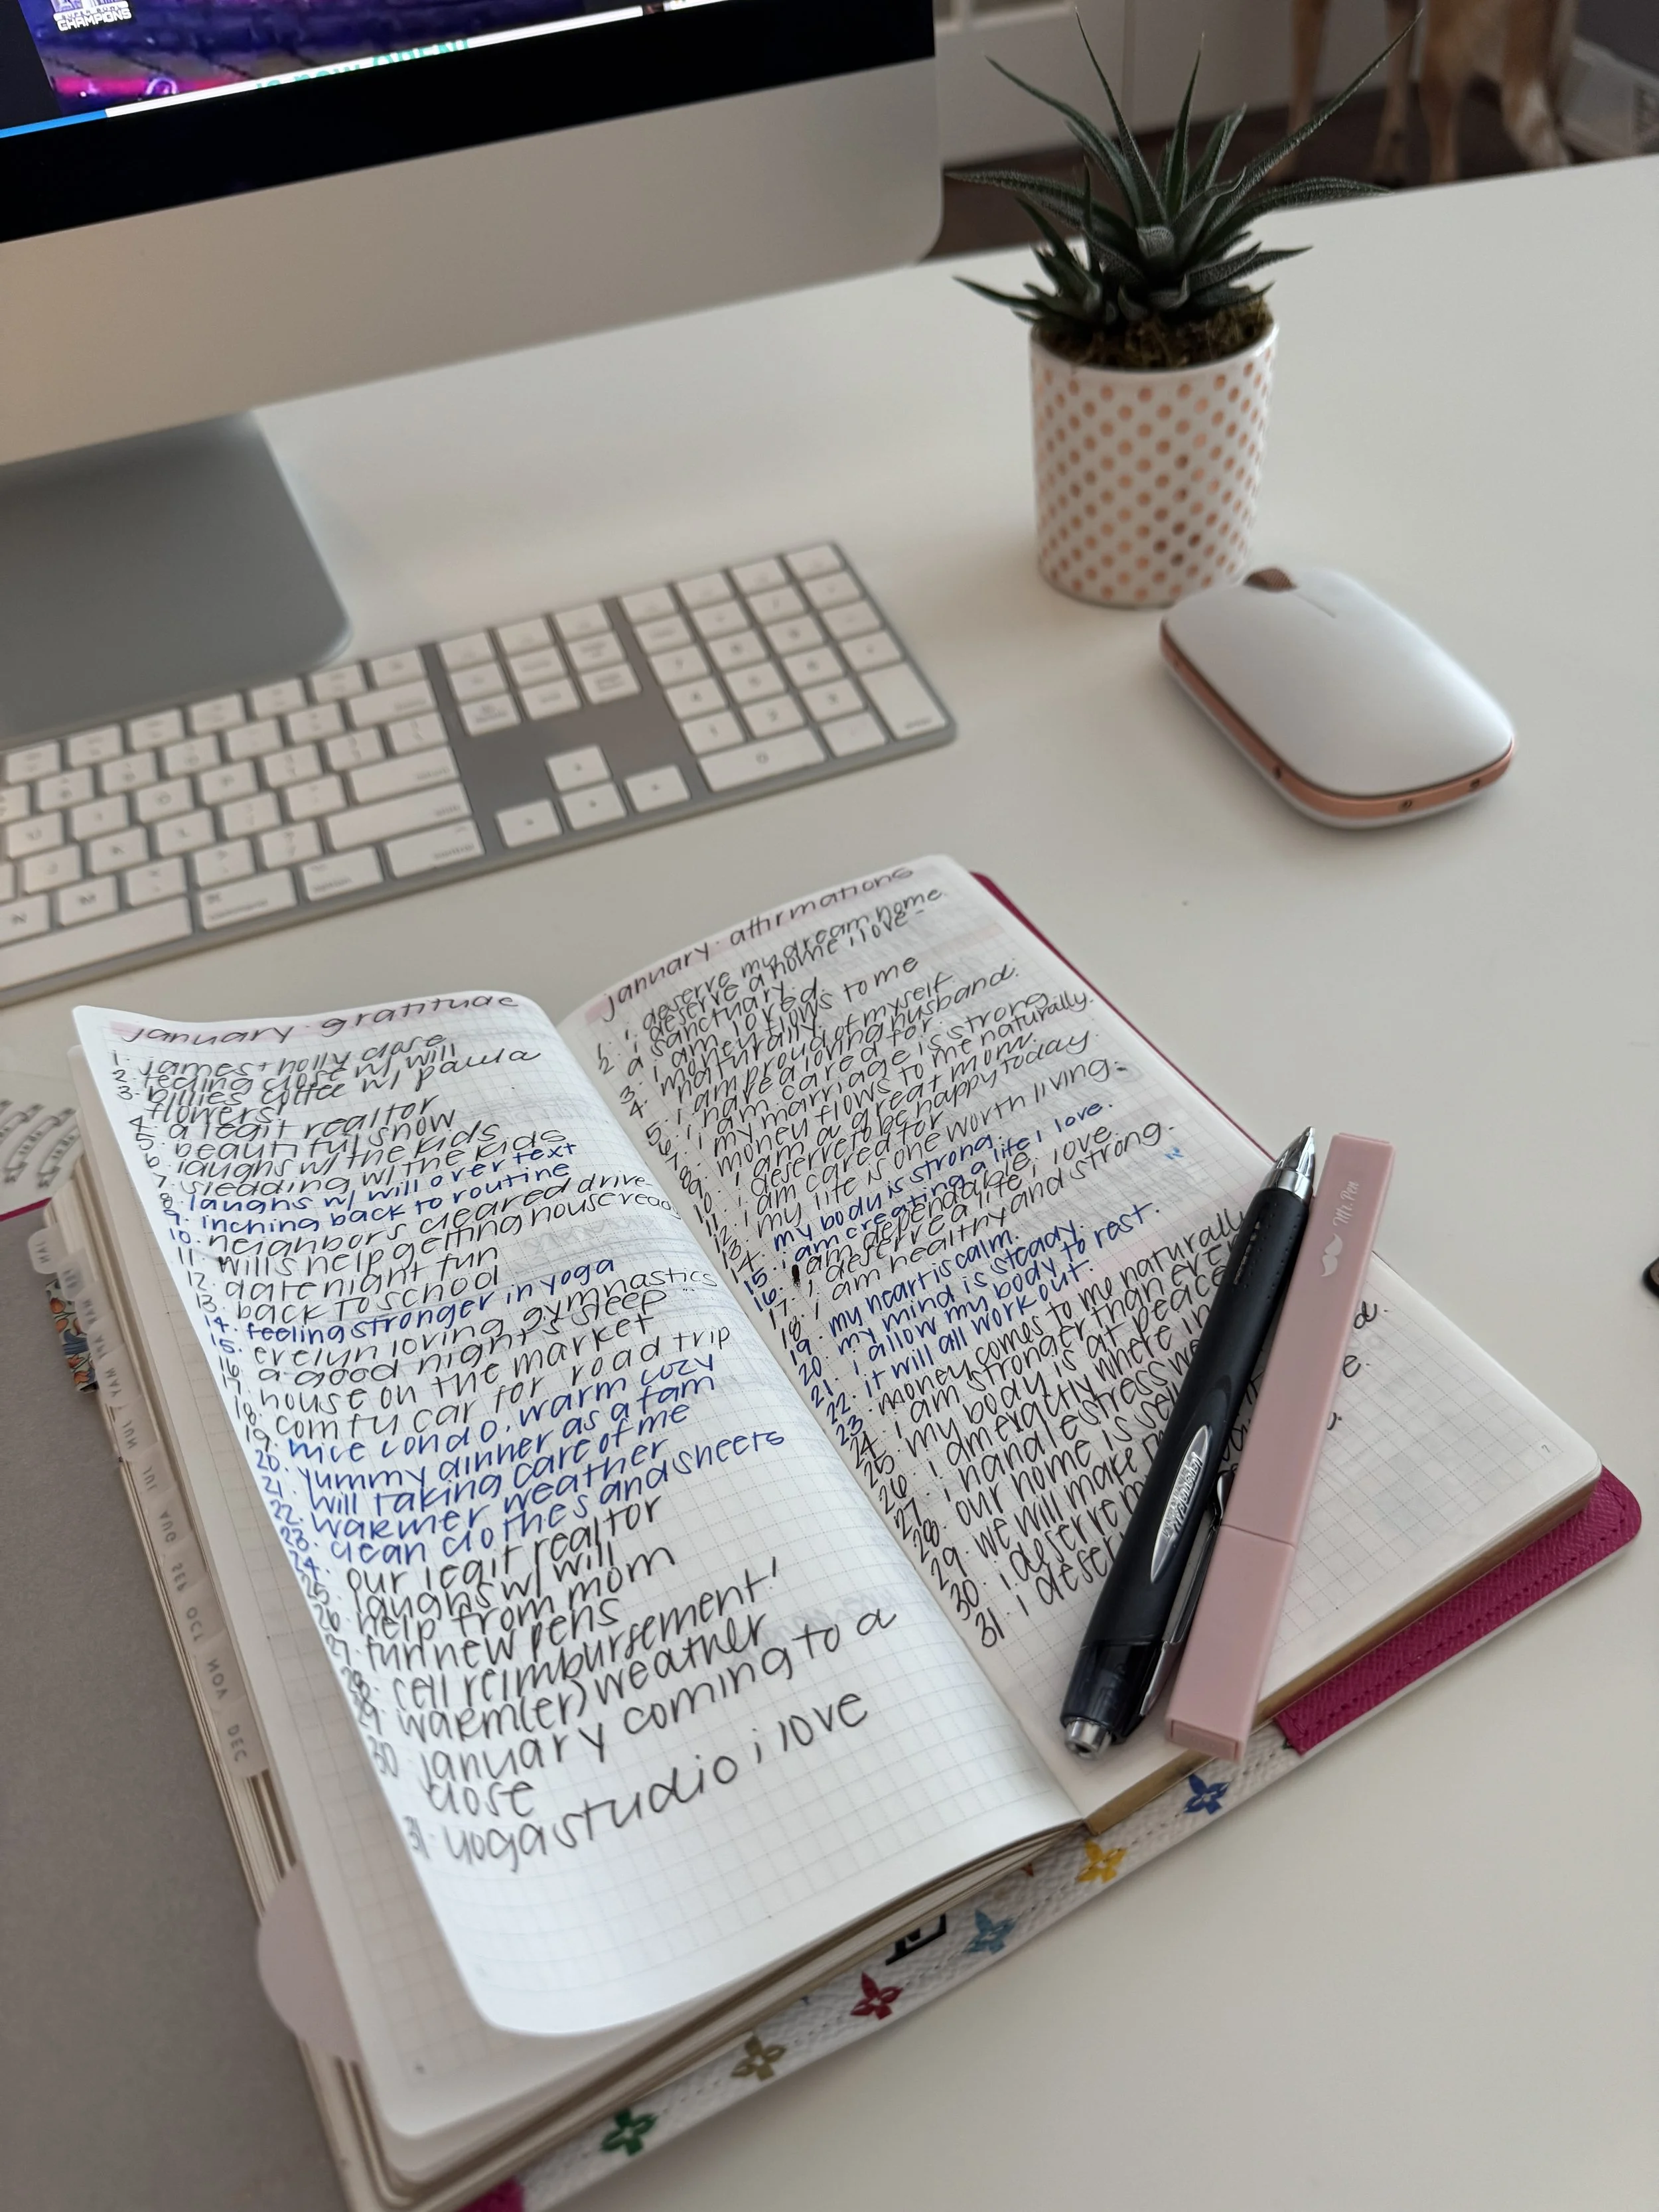 CHAMPIONS
is now open!
january · gratitude
1. james + holly close
2. feeling close w/ will
3. billies coffee w/ paula
flowers!
4. a legit realtor
5. beautiful snow
6. laughs w/ the kids
7. sledding w/ the kids
8. laughs w/ will over text
9. inching back to routine
10. neighbors cleared drive-
11. wills help getting house ready
12. date night fun
13. back to school
14. feeling stronger in yoga
15. evelyn loving gymnastics
16. a good night's sleep
17. house on the market
18. comfy car for road trip
19. nice condo, warm cozy
20. yummy dinner as a fam
21. will taking care of me
22. warmer weather
23. clean clothes and sheets
24. our legit realtor
25. laughs w/ will
26. help from mom
27. fun new pens
28. cell reimbursement!
29. warm(er) weather
30. january coming to a
close
31. yoga studio i love
january · affirmations
1. i deserve my dream home
2. i deserve a home i love -
a sanctuary.
3. i am loved.
4. i
naturally.
5. i am proud of myself
6. i have a loving husband.
7. i am cared for.
8. my marriage is strong
9. money flows to me naturally.
10. i am a great mom.
11. i deserve to be happy today.
12. i am cared for
13. my life is one worth living.
14. my body is strong.
15. i am creating a life i love.
16. i am dependable.
17. i deserve a life i love.
18. i am healthy and strong.
19. my heart is calm.
20. my mind is steady.
21. i allow my body to rest.
22. it will all work out.
23. money comes to me naturally
24. i am stronger than ever
25. my body is at peace
26. i am exactly where i
27. i handle stress we
28. our home is sell
29. we will make
30. i deserve m
31. i deser
d.
e.
Mr. Pen
JUL
AUG
SEP
OCT
NOV
DEC